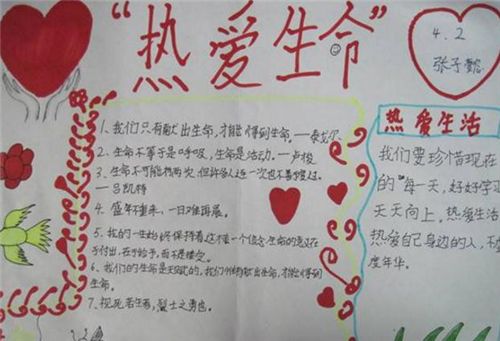 “热爱生命”
4.2
张子懿
1、我们只有献出生命,才能得到生命。—泰戈尔
2、生命不等于是呼吸,生命是活动。—卢梭
3、生命不可能有两次,但许多人连一次也不善度过。
—吕凯特
4、盛年不重来,一日难再晨。
5、我的一生始终保持着这样一个信念生命的意义在
于付出,在于给予,而不是接受。
6、我们的生命是天赋的,我们惟有献出生命,才能得到
生命。
7、视死若生者,烈士之勇也。
热爱生活
我们要珍惜现在
的每一天,好好学
天天向上,热爱生活
热爱自己身边的人,不
度年华。